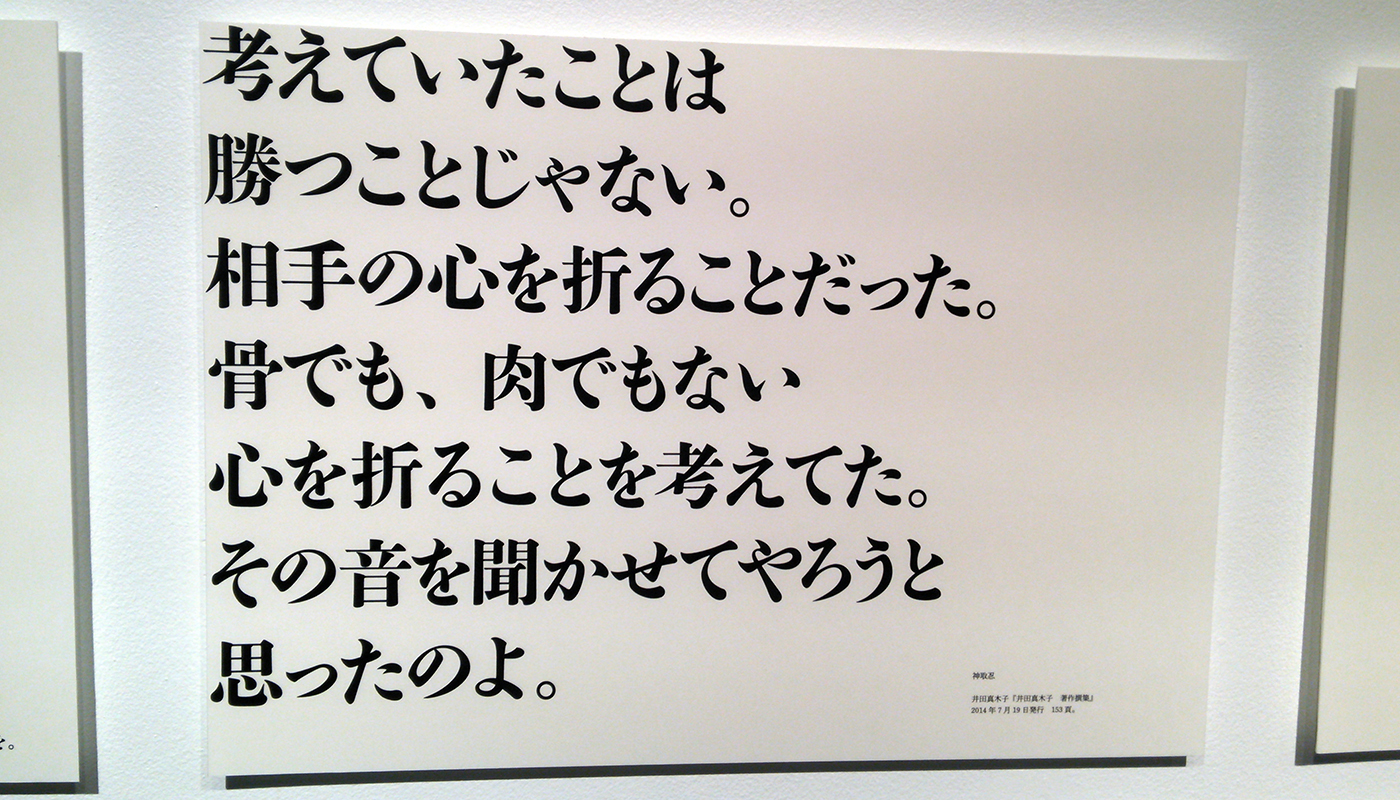 考えていたことは
勝つことじゃない。
相手の心を折ることだった。
骨でも、肉でもない
心を折ることを考えてた。
その音を聞かせてやろうと
思ったのよ。
神取忍
井田真木子『井田真木子　著作撰集』
2014年7月19日発行　153頁。